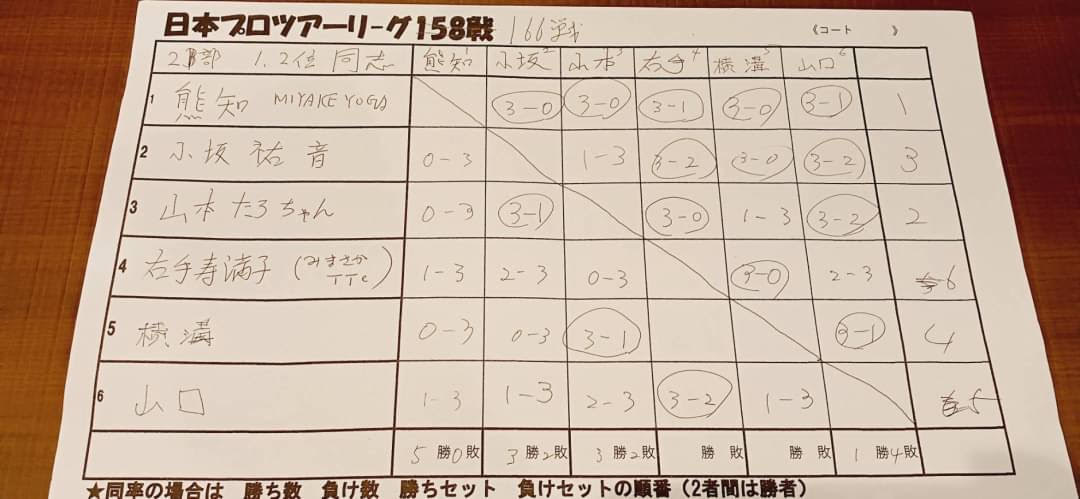 日本プロツアーリーグ158戦 166戦 《コート 》
2部 1.2位 同志 熊知 小坂2 山本3 右手4 横溝5 山口6
1 熊知 MIYAKE YOGA 3-0 3-0 3-1 3-0 3-1 1
2 小坂 祐音 0-3 1-3 3-2 3-0 3-2 3
3 山本 たろちゃん 0-3 3-1 3-0 1-3 3-2 2
4 右手寿満子 (みまさかTTC) 1-3 2-3 0-3 3-0 2-3 6
5 横溝 0-3 0-3 3-1 3-1 4
6 山口 1-3 1-3 2-3 3-2 1-3 5
5勝0敗 3勝2敗 3勝2敗 勝 敗 勝 敗 1勝4敗
★同率の場合は 勝ち数 負け数 勝ちセット 負けセットの順番（2者間は勝者）